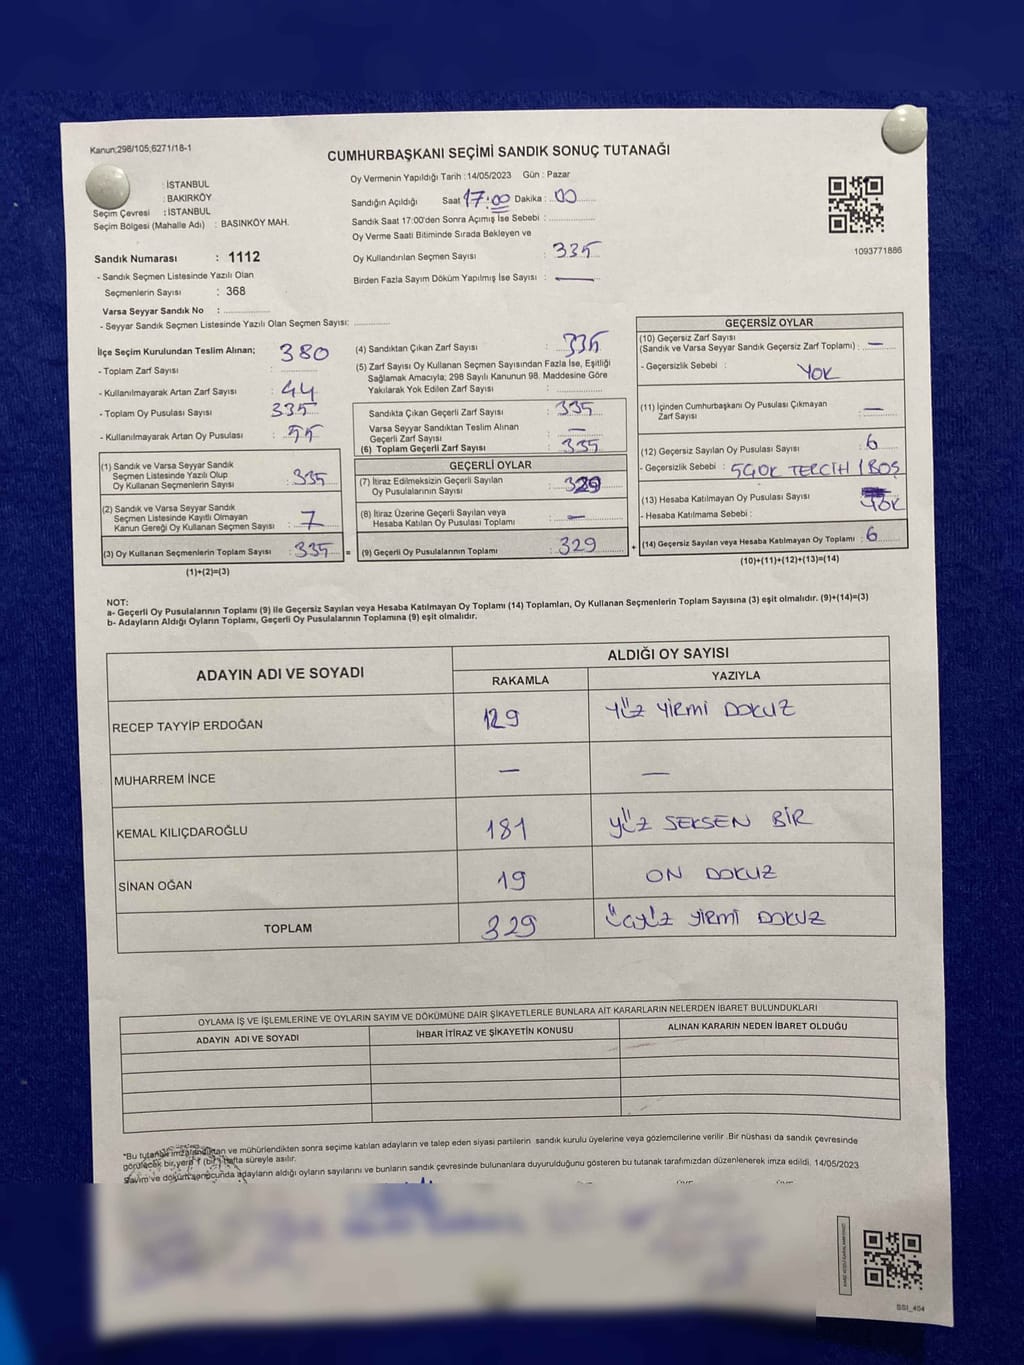 Kanun;298/105,6271/18-1
CUMHURBAŞKANI SEÇİMİ SANDIK SONUÇ TUTANAĞI
: İSTANBUL
: BAKIRKÖY
Seçim Çevresi : İSTANBUL
Seçim Bölgesi (Mahalle Adı) : BASINKÖY MAH.
Sandık Numarası : 1112
- Sandık Seçmen Listesinde Yazılı Olan
Seçmenlerin Sayısı : 368
Varsa Seyyar Sandık No :
- Seyyar Sandık Seçmen Listesinde Yazılı Olan Seçmen Sayısı:
Oy Vermenin Yapıldığı Tarih :14/05/2023 Gün : Pazar
Sandığın Açıldığı Saat 17:00 Dakika : 00
Sandık Saat 17:00'den Sonra Açımış İse Sebebi :
Oy Verme Saati Bitiminde Sırada Bekleyen ve
Oy Kullandırılan Seçmen Sayısı : 335
Birden Fazla Sayım Döküm Yapılmış İse Sayısı : —
1093771886
İlçe Seçim Kurulundan Teslim Alınan; 380
- Toplam Zarf Sayısı :
- Kullanılmayarak Artan Zarf Sayısı : 44
- Toplam Oy Pusulası Sayısı : 335
- Kullanılmayarak Artan Oy Pusulası : 55
(1) Sandık ve Varsa Seyyar Sandık
Seçmen Listesinde Yazılı Olup
Oy Kullanan Seçmenlerin Sayısı : 335
(2) Sandık ve Varsa Seyyar Sandık
Seçmen Listesinde Kayıtlı Olmayan
Kanun Gereği Oy Kullanan Seçmen Sayısı : 7
(3) Oy Kullanan Seçmenlerin Toplam Sayısı : 335 =
(1)+(2)=(3)
(4) Sandıktan Çıkan Zarf Sayısı : 335
(5) Zarf Sayısı Oy Kullanan Seçmen Sayısından Fazla İse, Eşitliği
Sağlamak Amacıyla; 298 Sayılı Kanunun 98. Maddesine Göre
Yakılarak Yok Edilen Zarf Sayısı :
Sandıkta Çıkan Geçerli Zarf Sayısı : 335
Varsa Seyyar Sandıktan Teslim Alınan
Geçerli Zarf Sayısı : —
(6) Toplam Geçerli Zarf Sayısı : 335
GEÇERLİ OYLAR
(7) İtiraz Edilmeksizin Geçerli Sayılan
Oy Pusulalarının Sayısı : 329
(8) İtiraz Üzerine Geçerli Sayılan veya
Hesaba Katılan Oy Pusulası Toplamı : —
(9) Geçerli Oy Pusulalarının Toplamı : 329 +
GEÇERSİZ OYLAR
(10) Geçersiz Zarf Sayısı
(Sandık ve Varsa Seyyar Sandık Geçersiz Zarf Toplamı) : —
- Geçersizlik Sebebi : YOK
(11) İçinden Cumhurbaşkanı Oy Pusulası Çıkmayan
Zarf Sayısı : —
(12) Geçersiz Sayılan Oy Pusulası Sayısı : 6
- Geçersizlik Sebebi : 5 ÇOK TERCİH 1 BOŞ
(13) Hesaba Katılmayan Oy Pusulası Sayısı : YOK
- Hesaba Katılmama Sebebi :
(14) Geçersiz Sayılan veya Hesaba Katılmayan Oy Toplamı : 6
(10)+(11)+(12)+(13)=(14)
NOT:
a- Geçerli Oy Pusulalarının Toplamı (9) ile Geçersiz Sayılan veya Hesaba Katılmayan Oy Toplamı (14) Toplamları, Oy Kullanan Seçmenlerin Toplam Sayısına (3) eşit olmalıdır. (9)+(14)=(3)
b- Adayların Aldığı Oyların Toplamı, Geçerli Oy Pusulalarının Toplamına (9) eşit olmalıdır.
ADAYIN ADI VE SOYADI ALDIĞI OY SAYISI
RAKAMLA YAZIYLA
RECEP TAYYİP ERDOĞAN 129 YÜZ YİRMİ DOKUZ
MUHARREM İNCE — —
KEMAL KILIÇDAROĞLU 181 YÜZ SEKSEN BİR
SİNAN OĞAN 19 ON DOKUZ
TOPLAM 329 ÜÇYÜZ YİRMİ DOKUZ
OYLAMA İŞ VE İŞLEMLERİNE VE OYLARIN SAYIM VE DÖKÜMÜNE DAİR ŞİKAYETLERLE BUNLARA AİT KARARLARIN NELERDEN İBARET BULUNDUKLARI
ADAYIN ADI VE SOYADI İHBAR İTİRAZ VE ŞİKAYETİN KONUSU ALINAN KARARIN NEDEN İBARET OLDUĞU
*Bu tutanak imzalandıktan ve mühürlendikten sonra seçime katılan adayların ve talep eden siyasi partilerin sandık kurulu üyelerine veya gözlemcilerine verilir .Bir nüshası da sandık çevresinde
görülecek bir yere 1 (bir) hafta süreyle asılır.
Sayım ve döküm sonucunda adayların aldığı oyların sayılarını ve bunların sandık çevresinde bulunanlara duyurulduğunu gösteren bu tutanak tarafımızdan düzenlenerek imza edildi. 14/05/2023
SSI_404